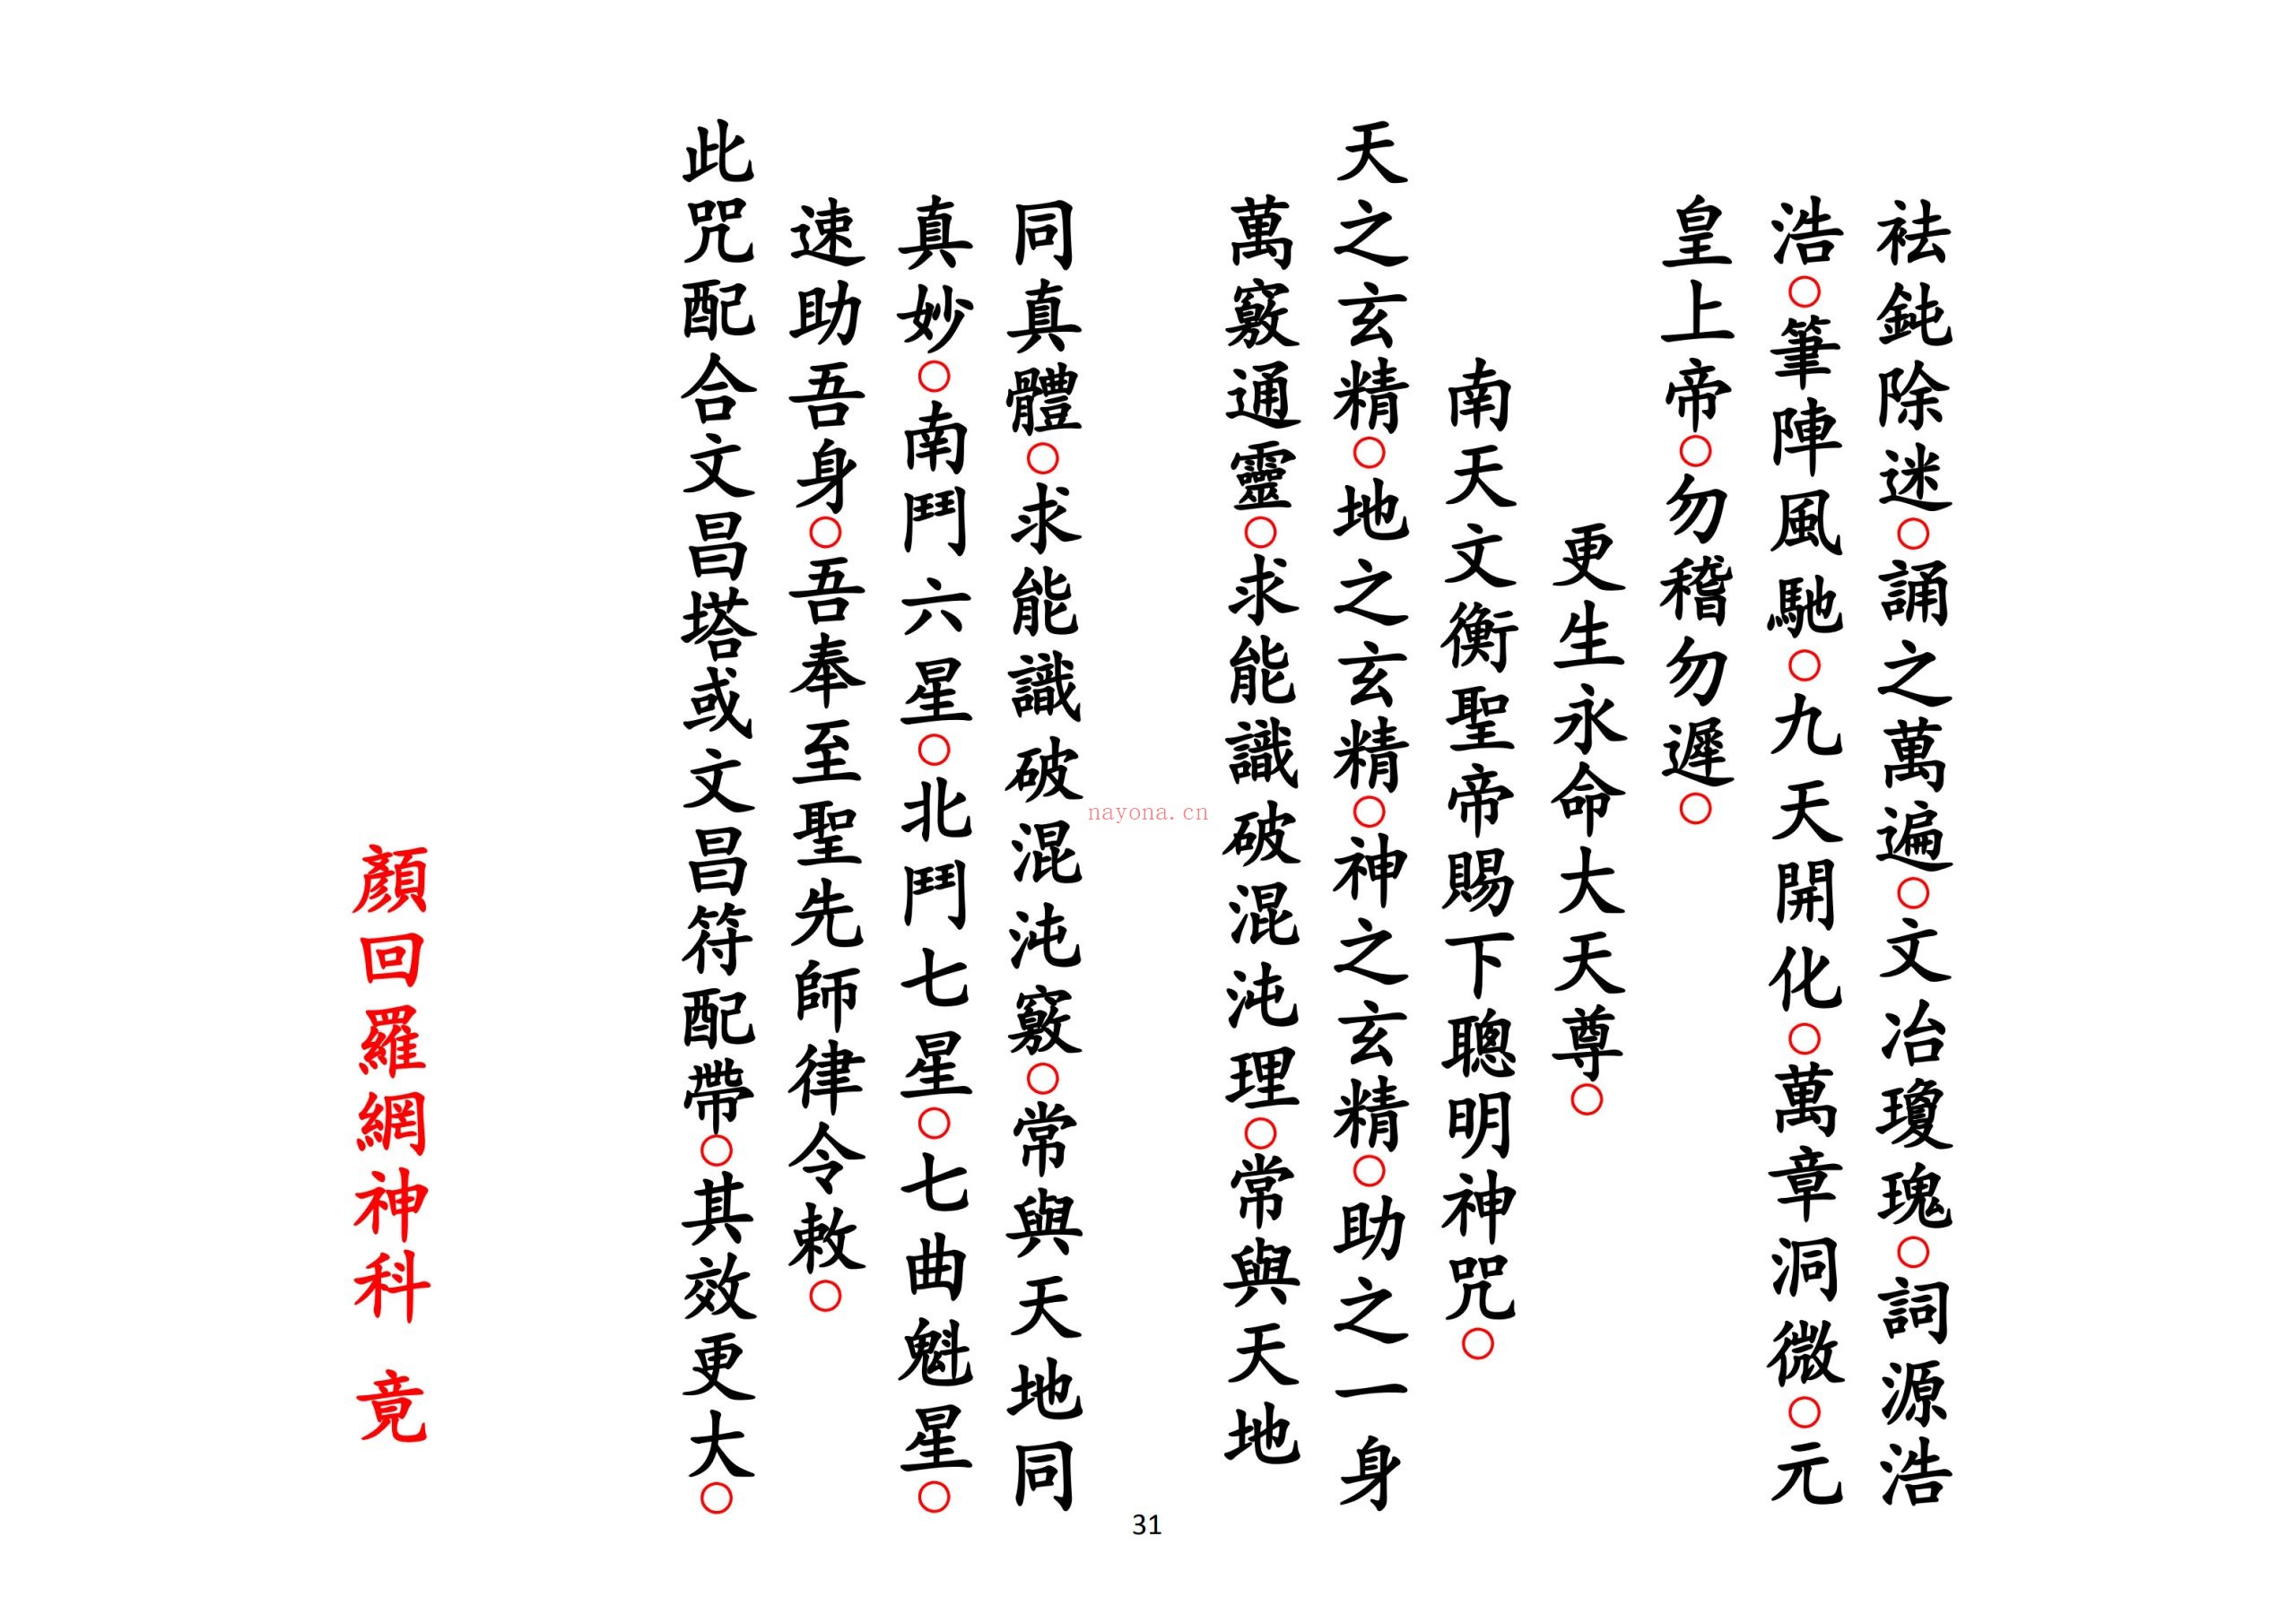 袪鈍除迷○誦之萬遍○文冶瓊瑰○詞源浩
浩○筆陣風馳○九天開化○萬章洞微○元
皇上帝○勿稽勿遲○
更生永命大天尊○
南天文衡聖帝賜下聰明神咒○
天之玄精○地之玄精○神之玄精○助之一身
萬竅通靈○求能識破混沌理○常與天地
同真體○求能識破混沌竅○常與天地同
真妙○南鬥六星○北鬥七星○七曲魁星○
速助吾身○吾奉至聖先師律令敕○
此咒配合文昌塔或文昌符配帶○其效更大○
顏回羅網神科 竟
nayona.cn
31